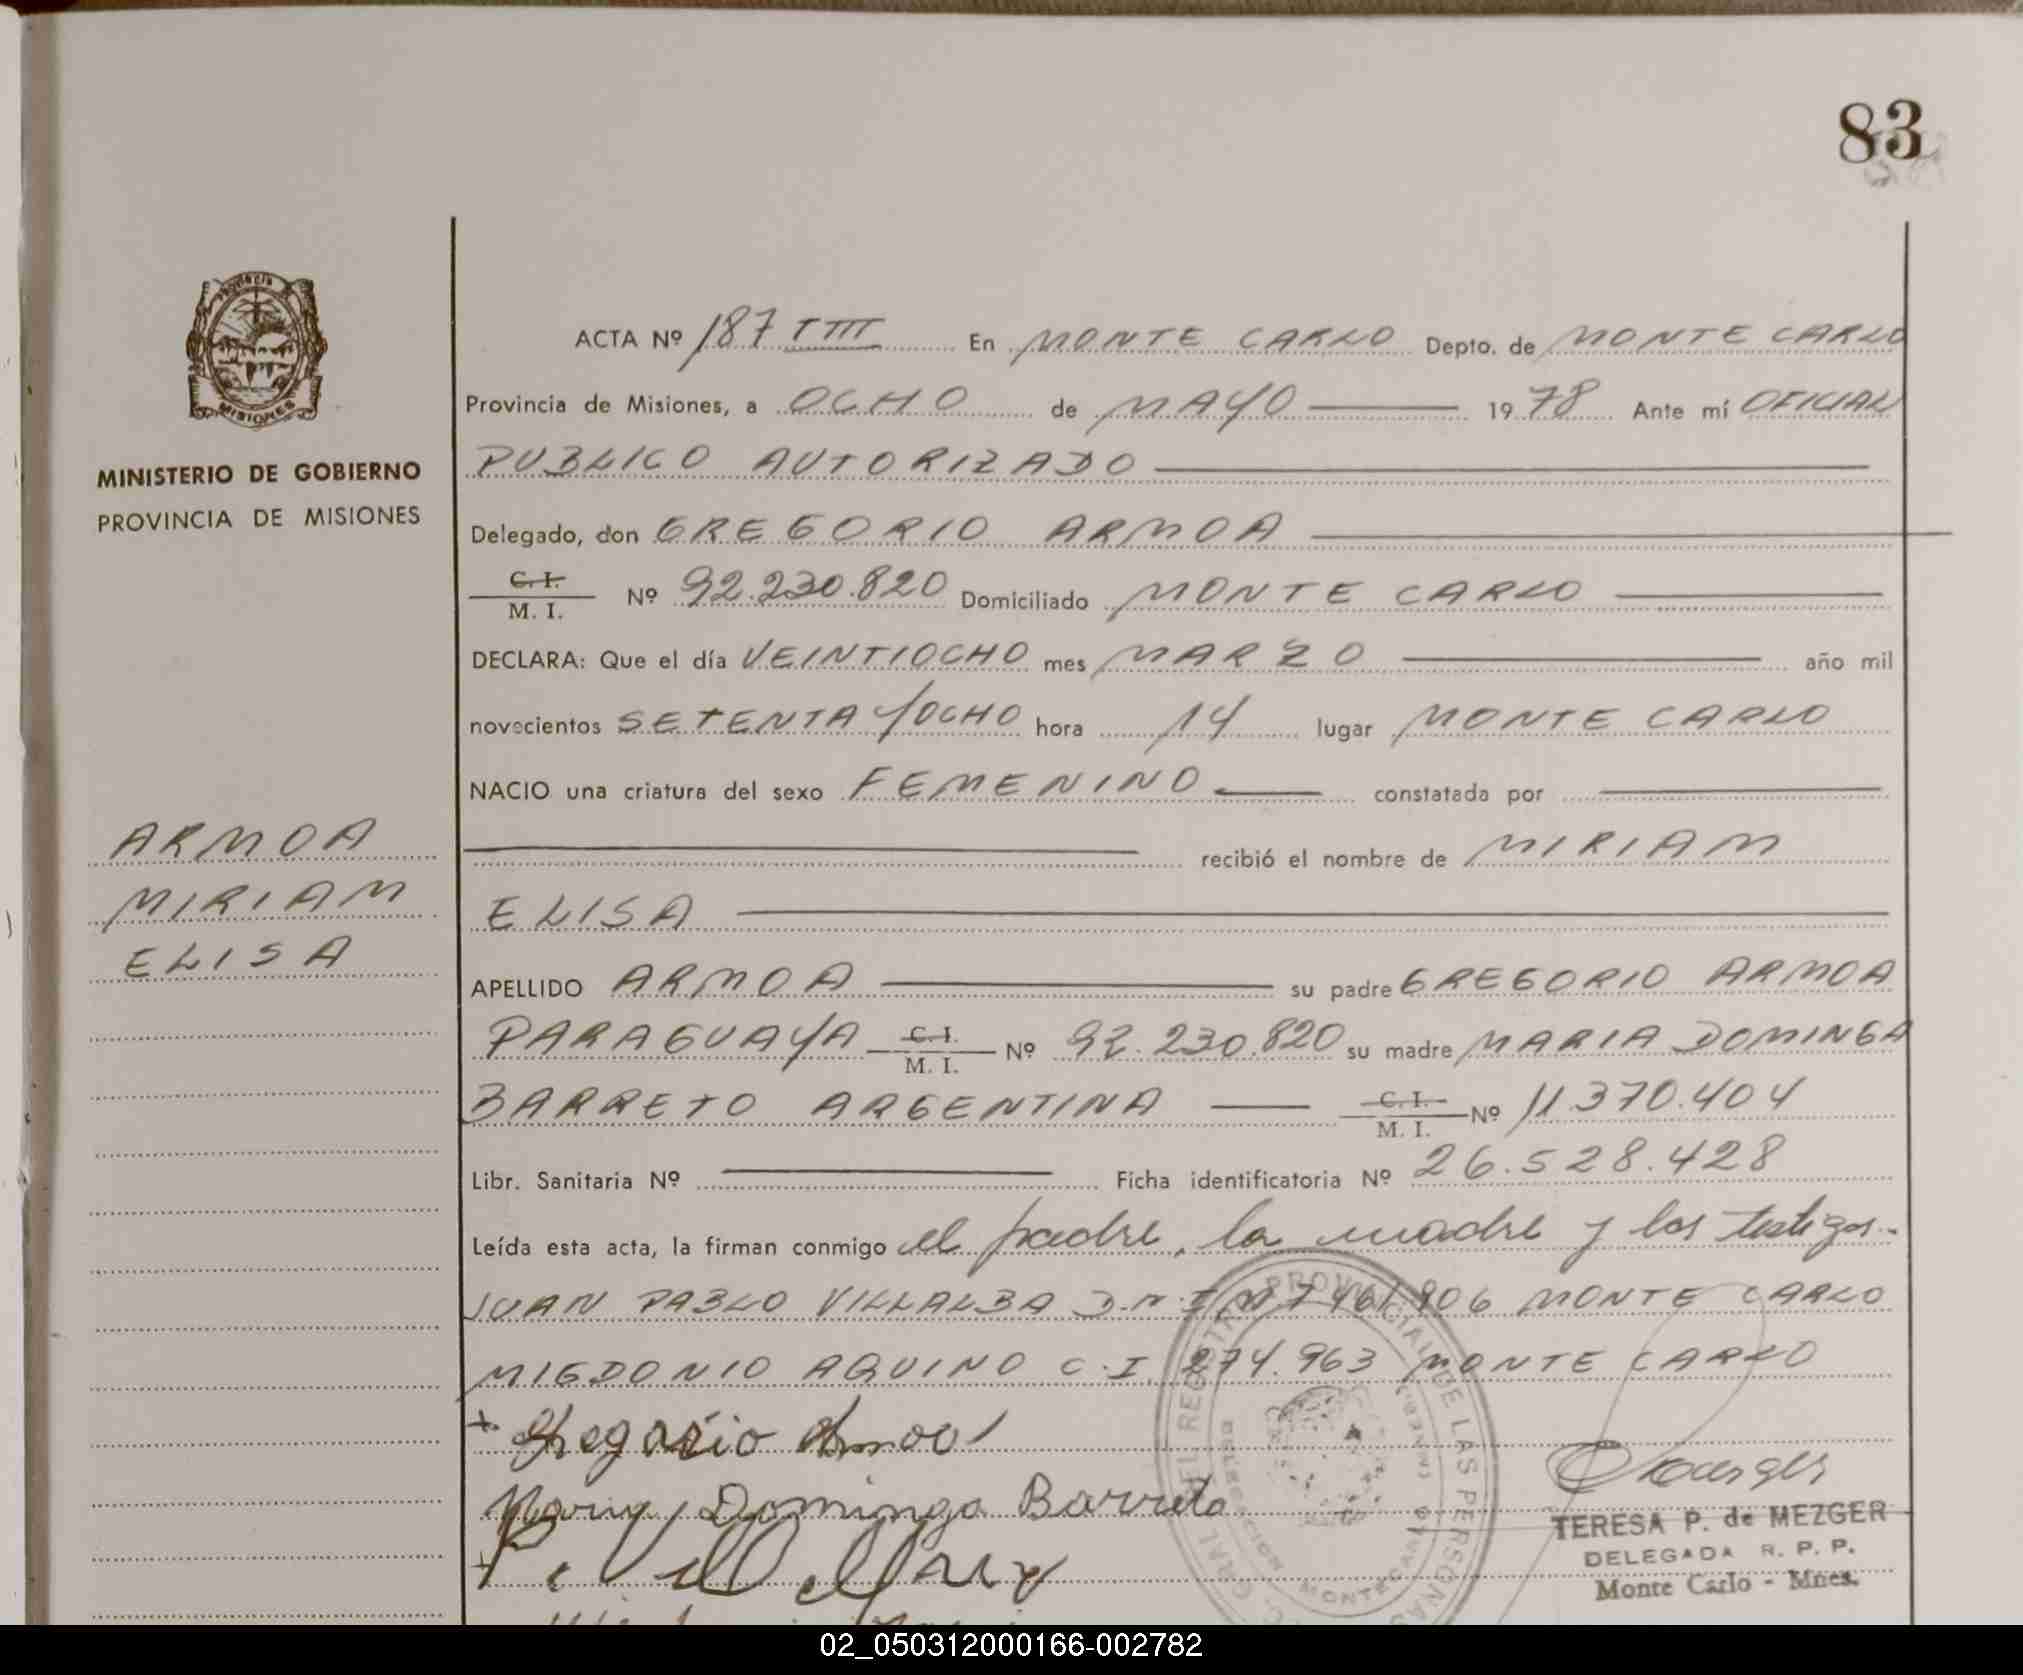 83
Provincia
MISIONES
MINISTERIO DE GOBIERNO
PROVINCIA DE MISIONES
ARMOA
MIRIAM
ELISA
ACTA Nº 187 TIII En MONTE CARLO Depto. de MONTE CARLO
Provincia de Misiones, a OCHO de MAYO 19 78 Ante mí OFICIAL
PUBLICO AUTORIZADO
Delegado, don GREGORIO ARMOA
C. I.
M. I. Nº 92.230.820 Domiciliado MONTE CARLO
DECLARA: Que el día VEINTIOCHO mes MARZO año mil
novecientos SETENTA Y OCHO hora 14 lugar MONTE CARLO
NACIO una criatura del sexo FEMENINO constatada por
recibió el nombre de MIRIAM
ELISA
APELLIDO ARMOA su padre GREGORIO ARMOA
PARAGUAYA C. I. M. I. Nº 92.230.820 su madre MARIA DOMINGA
BARRETO ARGENTINA C. I. M. I. Nº 11.370.404
Libr. Sanitaria Nº Ficha identificatoria Nº 26.528.428
Leída esta acta, la firman conmigo el padre, la madre y los testigos.
JUAN PABLO VILLALBA D.N.I. Nº 7461906 MONTE CARLO
MIGDONIO AQUINO C.I. 274.963 MONTE CARLO
Gregorio Armoa
Maria Dominga Barreto
TERESA P. de MEZGER
DELEGADA R. P. P.
Monte Carlo - Mnes.
GRAL DEL REGISTRO PROVINCIAL DE LAS PERSONAS
DELEGACION MONTECARLO
02_050312000166-002782